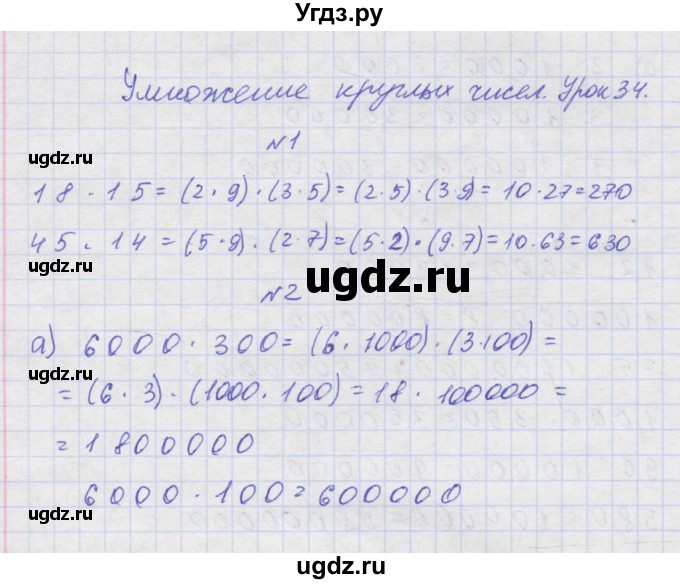 Угдз.ру
Умножение круглых чисел. Урок 34.
№1
ugdz.ru
18 · 15 = (2 · 9) · (3 · 5) = (2 · 5) · (3 · 9) = 10 · 27 = 270
45 · 14 = (5 · 9) · (2 · 7) = (5 · 2) · (9 · 7) = 10 · 63 = 630
ugdz.ru
№2
ugdz.ru
а) 6000 · 300 = (6 · 1000) · (3 · 100) =
ugdz.ru
= (6 · 3) · (1000 · 100) = 18 · 100000 =
= 1800000
6000 · 100 = 600000
ugdz.ru
ugdz.ru